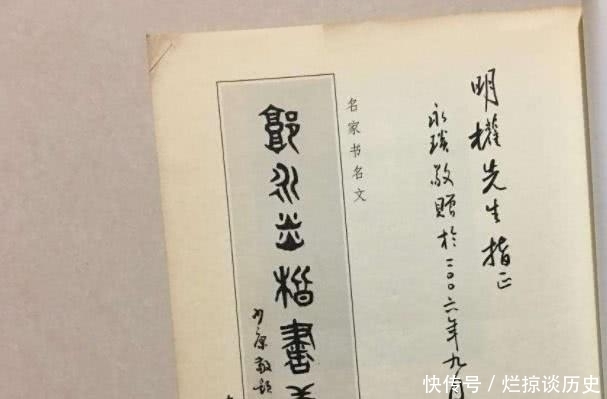 明權先生指正
永 敬贈於二〇〇六年九月
名家书名文
永 楷書
敬題
快传号／烂掠谈历史